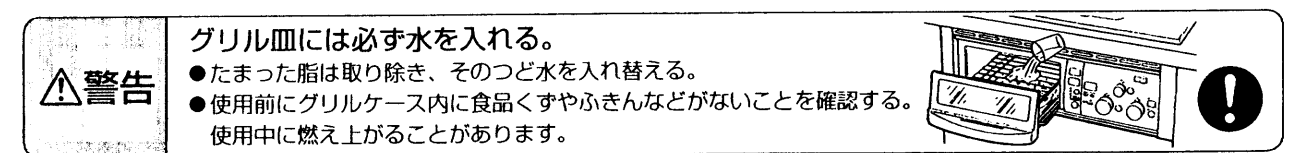 ⚠警告
グリル皿には必ず水を入れる。
●たまった脂は取り除き、そのつど水を入れ替える。
●使用前にグリルケース内に食品くずやふきんなどがないことを確認する。
使用中に燃え上がることがあります。